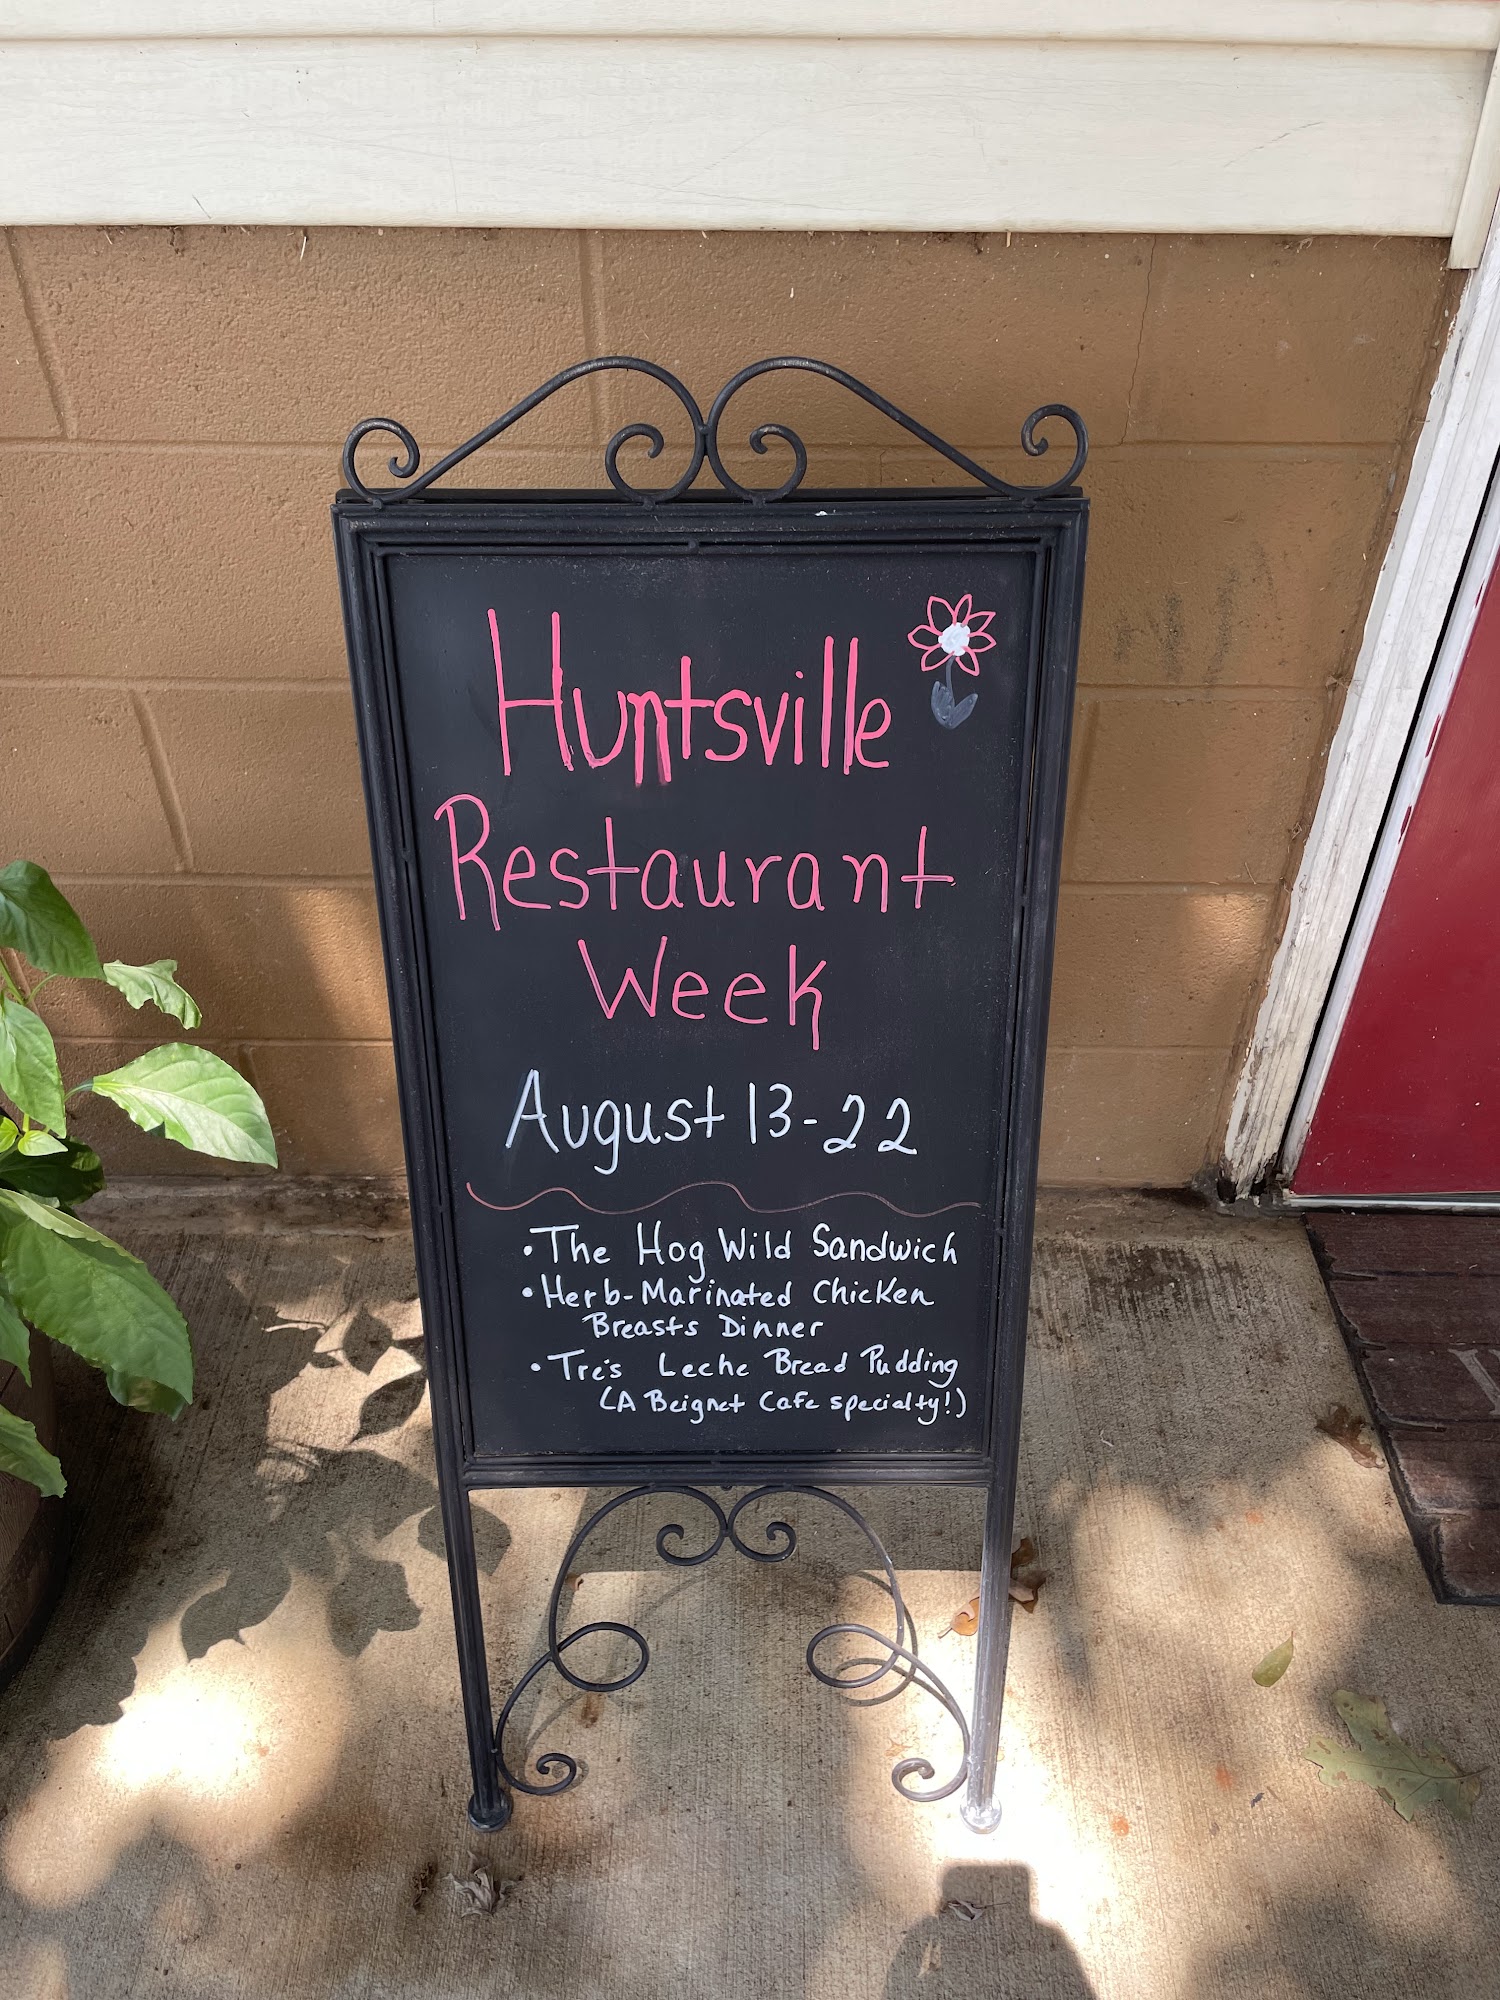 Huntsville
Restaurant
Week
August 13-22
• The Hog Wild Sandwich
• Herb-Marinated Chicken
Breasts Dinner
• Tre's Leche Bread Pudding
(A Beignet Cafe specialty!)